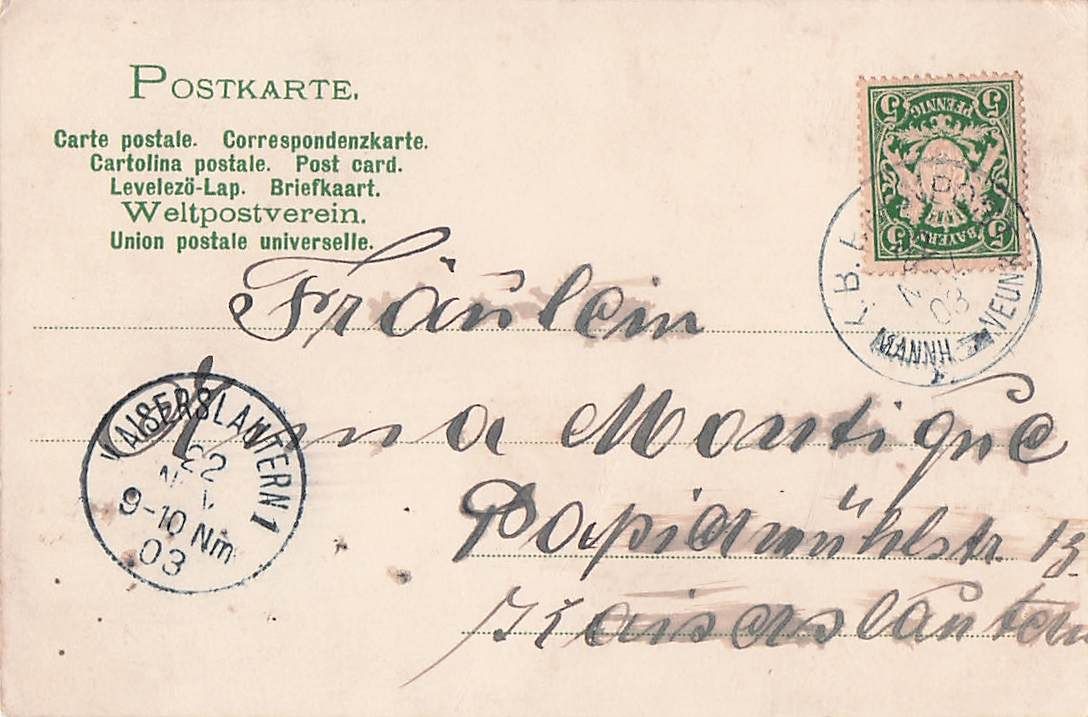 POSTKARTE.
Carte postale. Correspondenzkarte.
Cartolina postale. Post card.
Levelezö-Lap. Briefkaart.
Weltpostverein.
Union postale universelle.
5 PFENNIG 5
5 BAYERN 5
K.B.
03
MANNH
Fräulein
Anna Montigue
Papiermühlstr. 13
Kaiserslautern
KAISERSLAUTERN 1
22
9-10 Nm
03